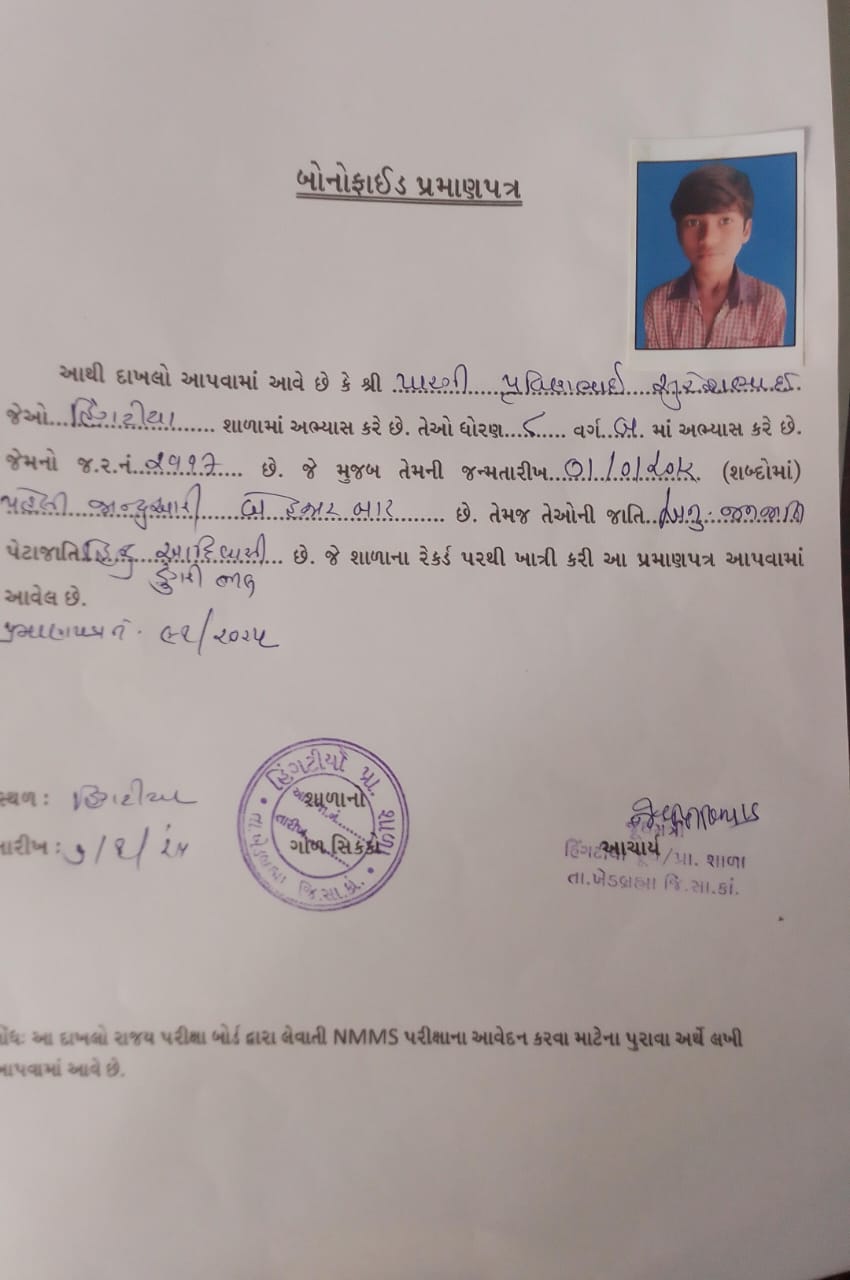 બોનોફાઈડ પ્રમાણપત્ર
આથી દાખલો આપવામાં આવે છે કે શ્રી પારગી પ્રવિણભાઈ સુરેશભાઈ.
જેઓ હિંગટીયા શાળામાં અભ્યાસ કરે છે. તેઓ ધોરણ ૮ વર્ગ બ માં અભ્યાસ કરે છે.
જેમનો જ.ર.નં. ૨૧૧૭ છે. જે મુજબ તેમની જન્મતારીખ (શબ્દોમાં)
પહેલી જાન્યુઆરી બે હજાર બાર છે. તેમજ તેઓની જાતિ અનુ: જનજાતિ
પેટાજાતિ હિન્દુ આદિવાસી છે. જે શાળાના રેકર્ડ પરથી ખાત્રી કરી આ પ્રમાણપત્ર આપવામાં
ડુંગરી
આવેલ છે.
પ્રમાણપત્ર નં. /૨૦૨૫
સ્થળ: હિંગટીયા
તારીખ:
હિંગટીયા પ્રા. શાળા
તા.ખેડબ્રહ્મા જિ.સા.કાં.
શાળાનો
ગોળ સિક્કો
આચાર્ય
હિંગટીયા પ્રા. શાળા
તા.ખેડબ્રહ્મા જિ.સા.કાં.
નોંધ: આ દાખલો રાજય પરીક્ષા બોર્ડ દ્વારા લેવાતી NMMS પરીક્ષાના આવેદન કરવા માટેના પુરાવા અર્થે લખી
આપવામાં આવે છે.